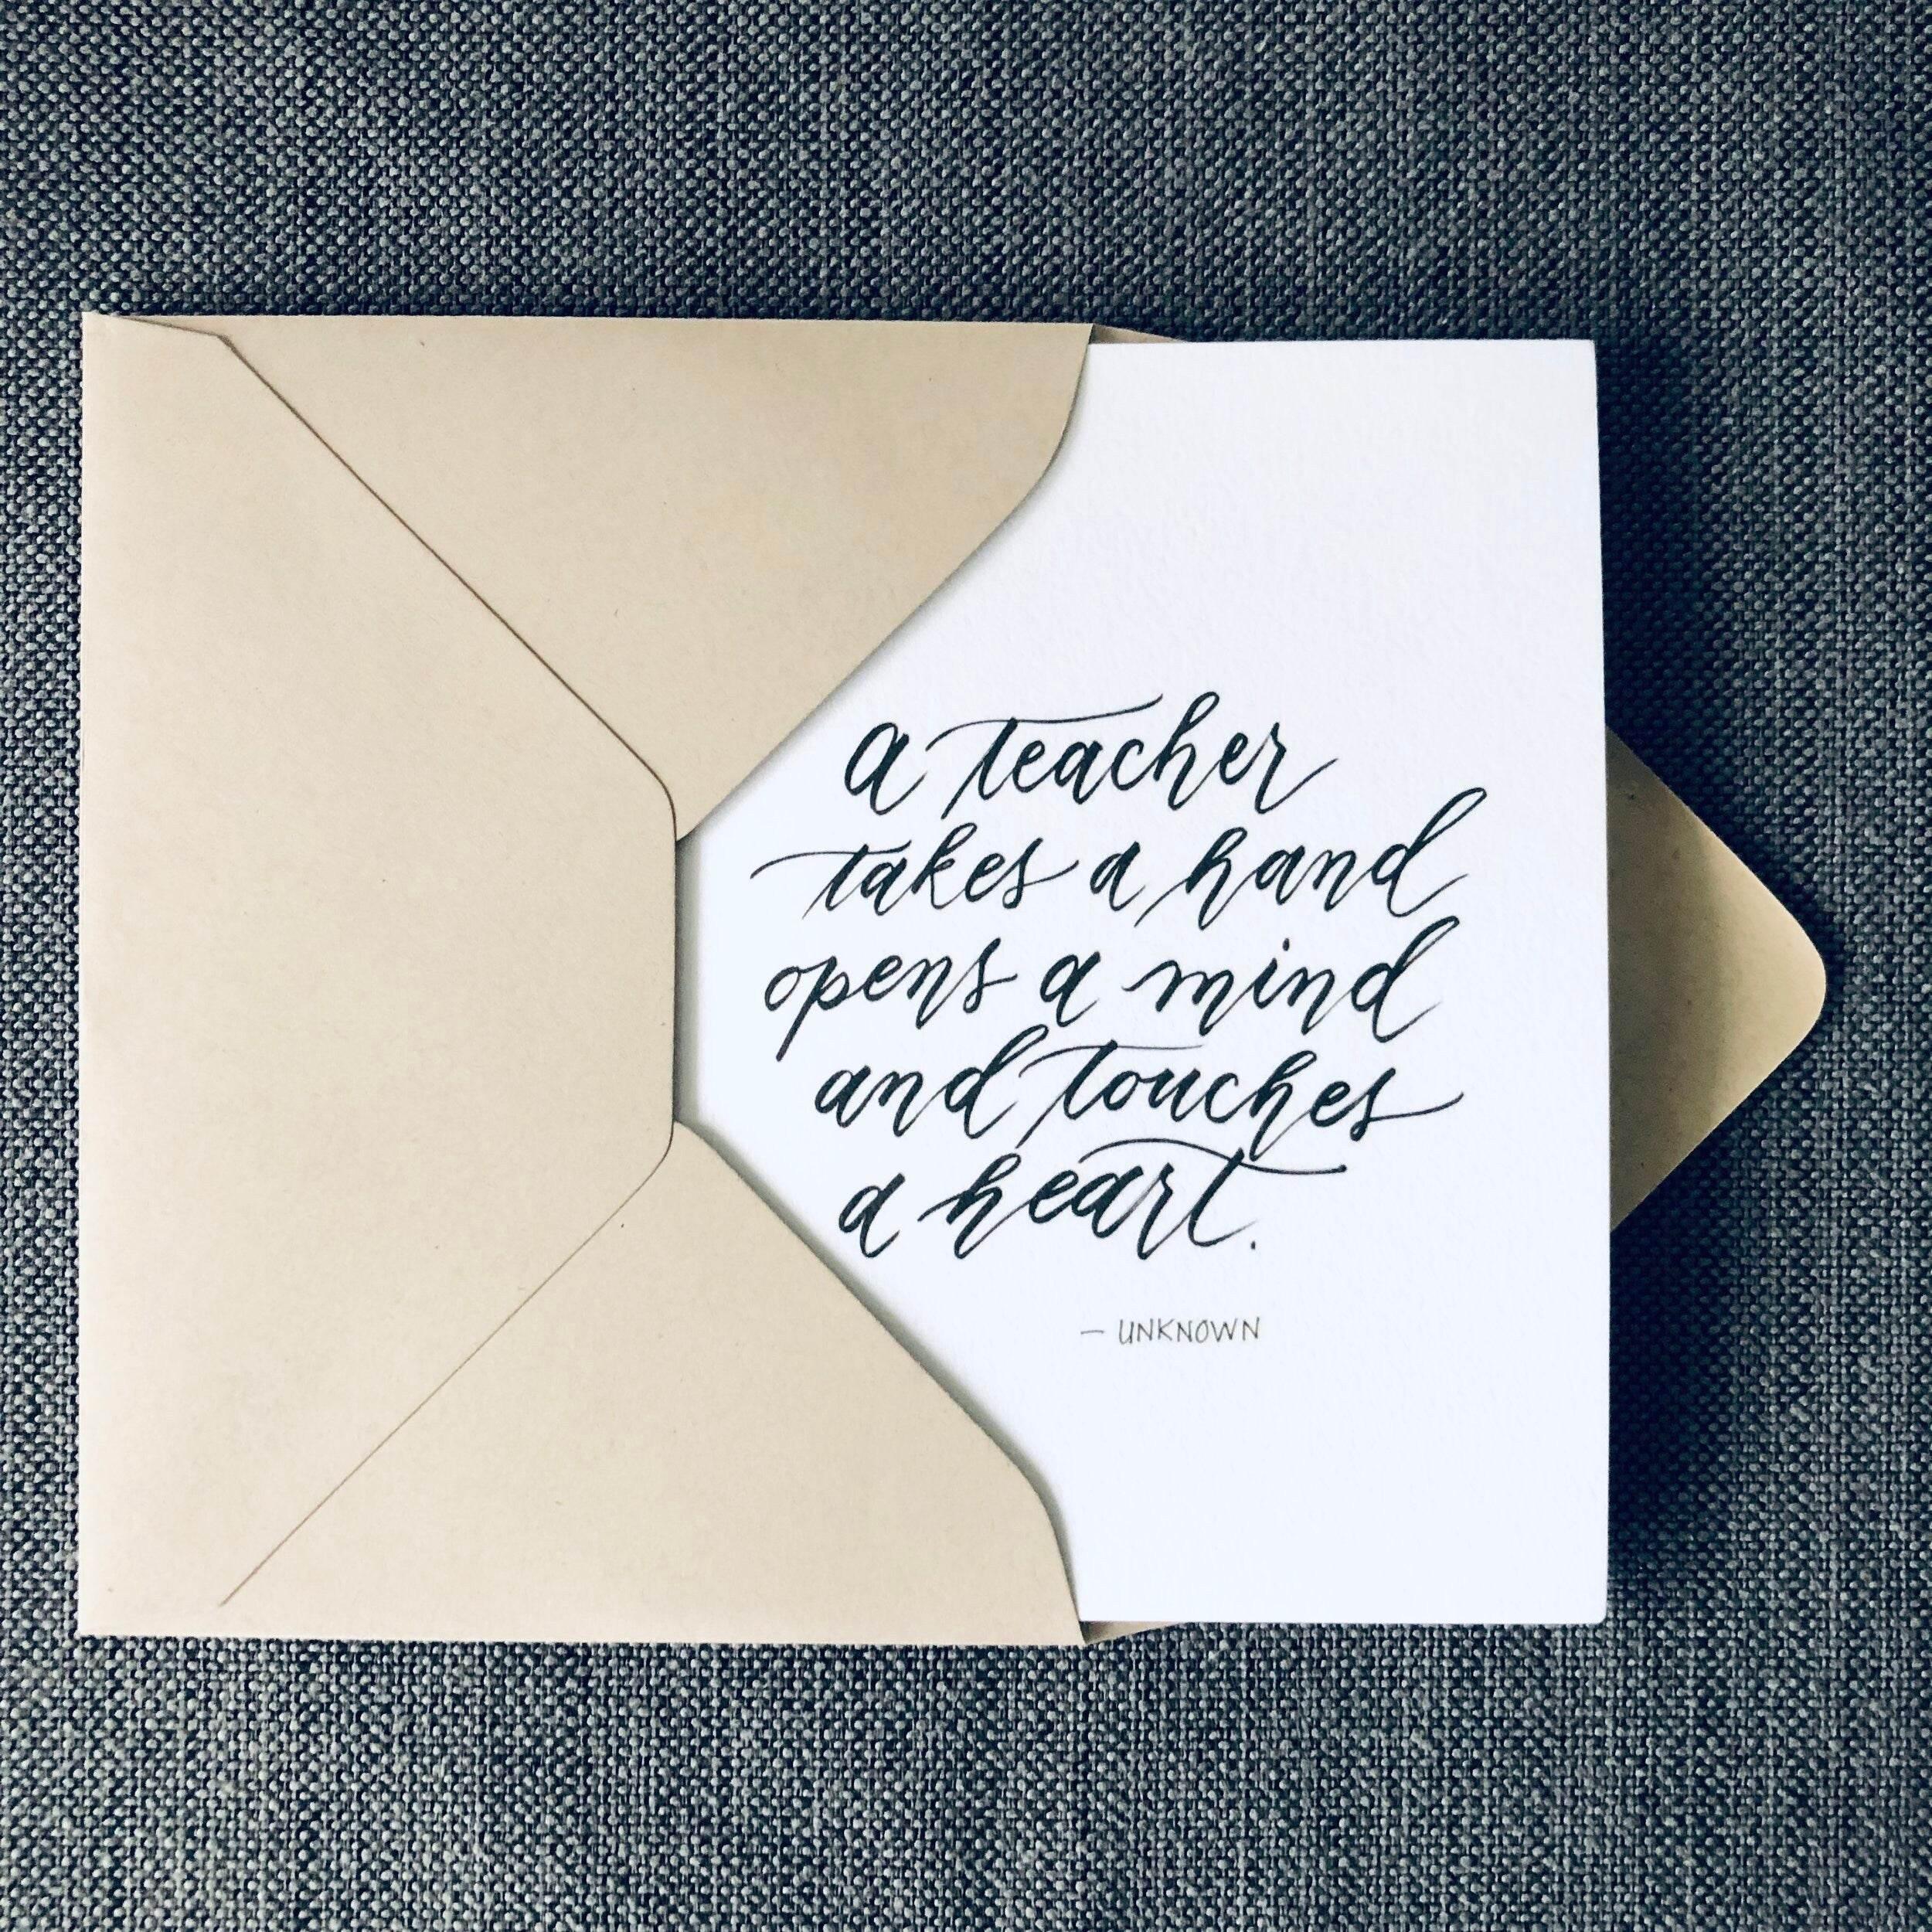 a teacher
takes a hand
opens a mind
and touches
a heart.
- UNKNOWN